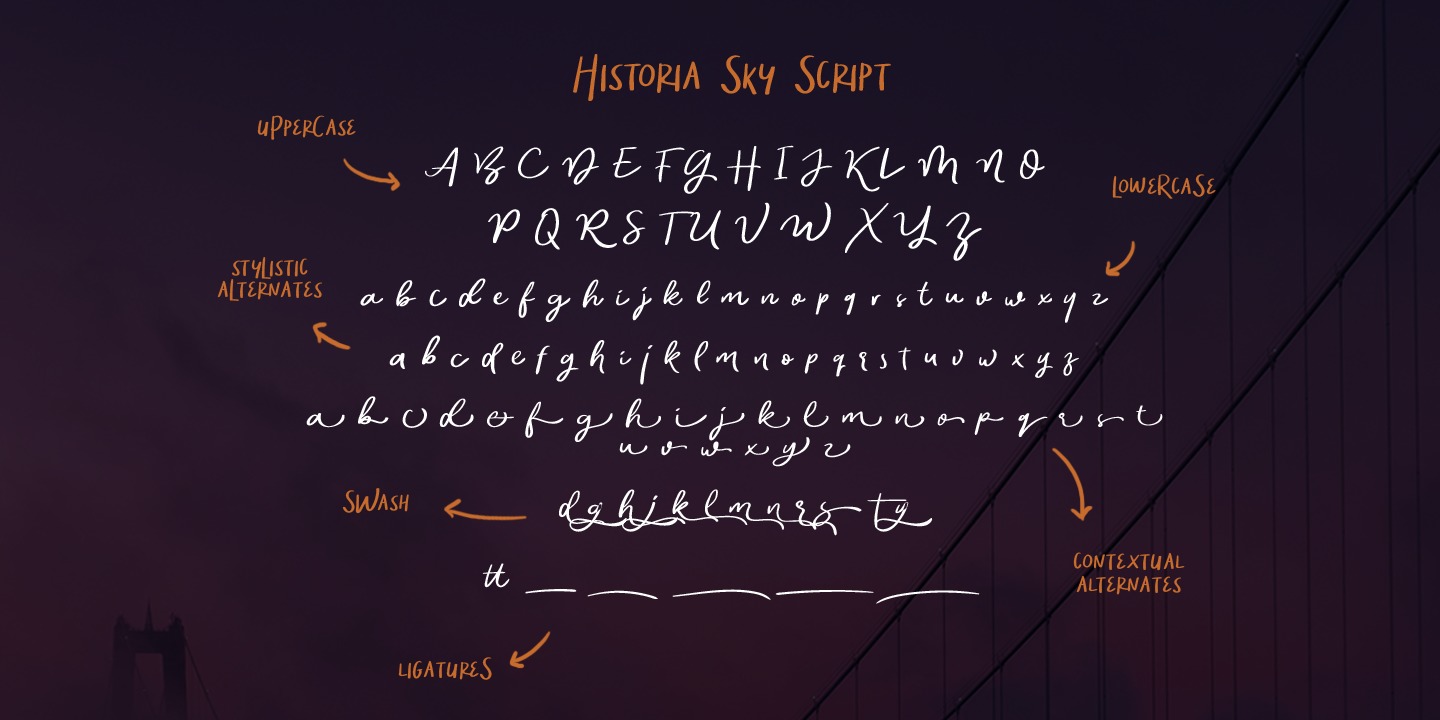 Historia Sky Script
uPPERCASE
A B C D E F G H I J K L M N O
LOWERCASE
P Q R S T U V W X Y Z
STYLISTIC
ALTERNATES
a b c d e f g h i j k l m n o p q r s t u v w x y z
a b c d e f g h i j k l m n o p q r s t u v w x y z
a b c d e f g h i j k l m n o p q r s t
u v w x y z
SWASH
d g h j k l m n r s t y
CONTEXTUAL
ALTERNATES
tt
LIGATURES